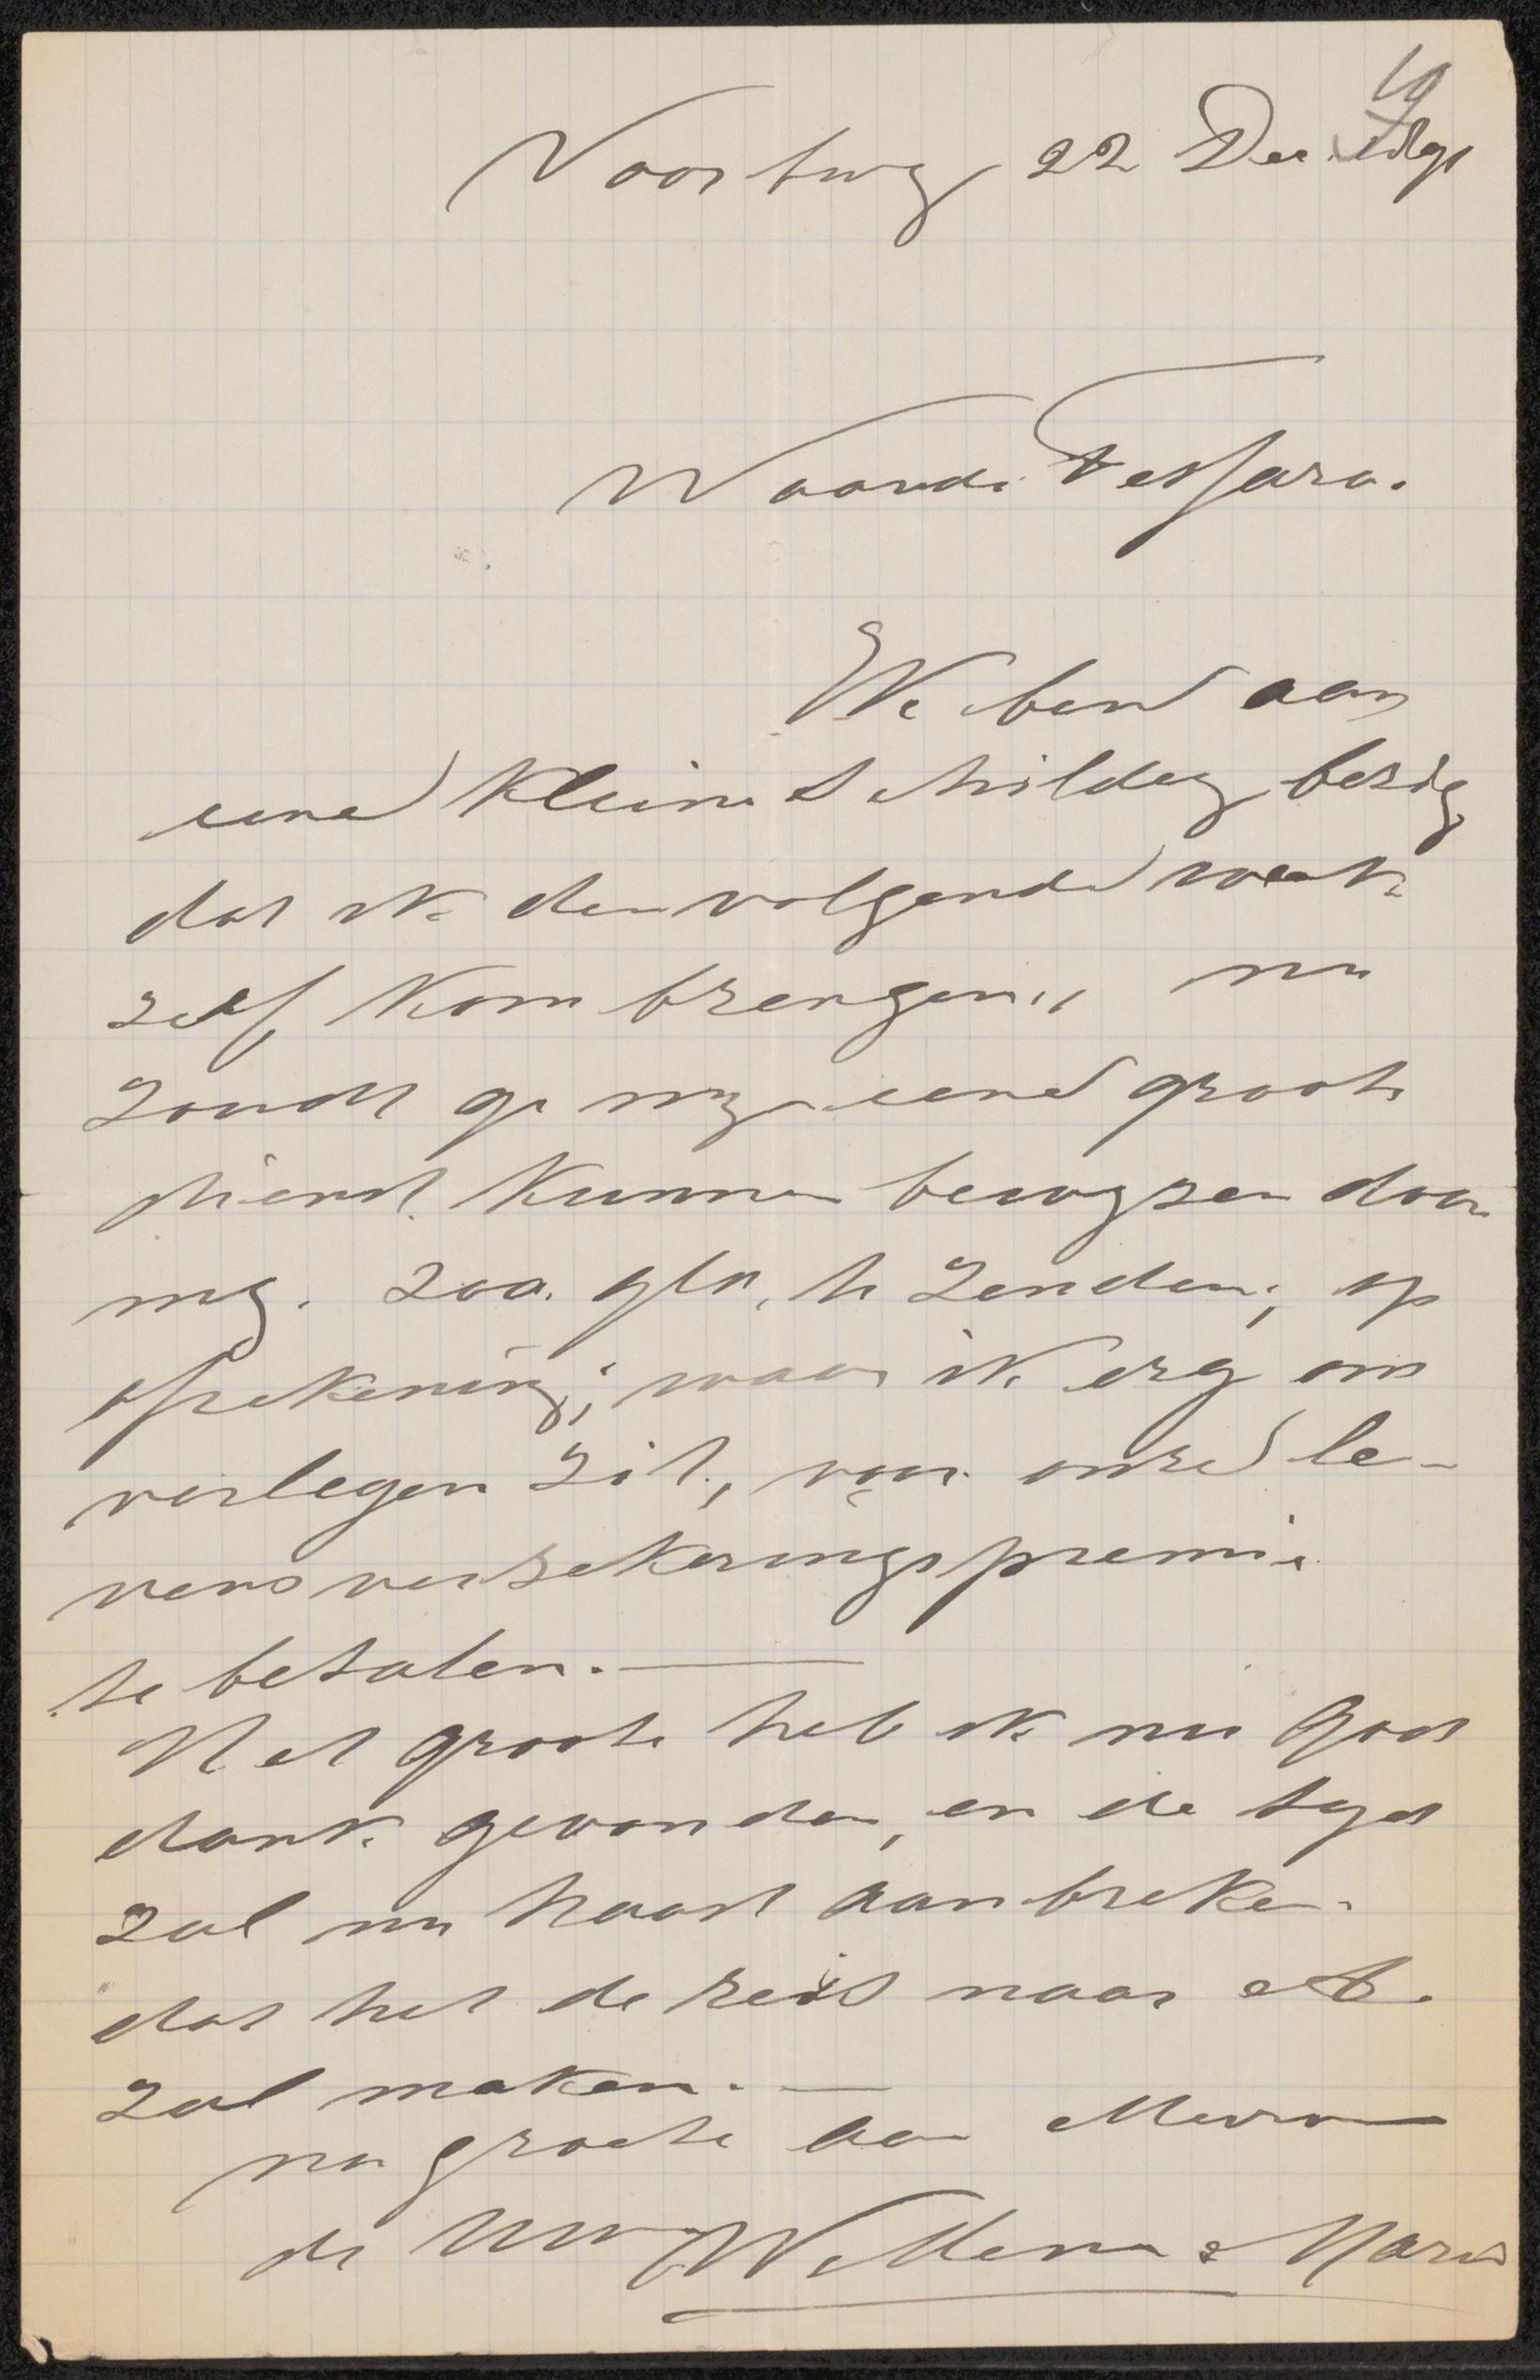 Voorburg 22 Dec
Waarde Tessaro.
Ik ben aan
eene kleine schildery bezig,
dat ik de volgende week
zelf kom brengen, nu
zoudt ge my eene groote
dienst kunnen bewyzen door
my. 200. gld. te zenden; op
afrekening; waar ik erg om
verlegen zit, voor onze le-
vensverzekeringspremie
te betalen. —
Het groote heb ik nu God
dank gevonden, en de tyd
zal nu haast aanbreken
dat het de reis naar A.
zal maken. —
na groete aan Mevrouw
de Uwe Willem Maris